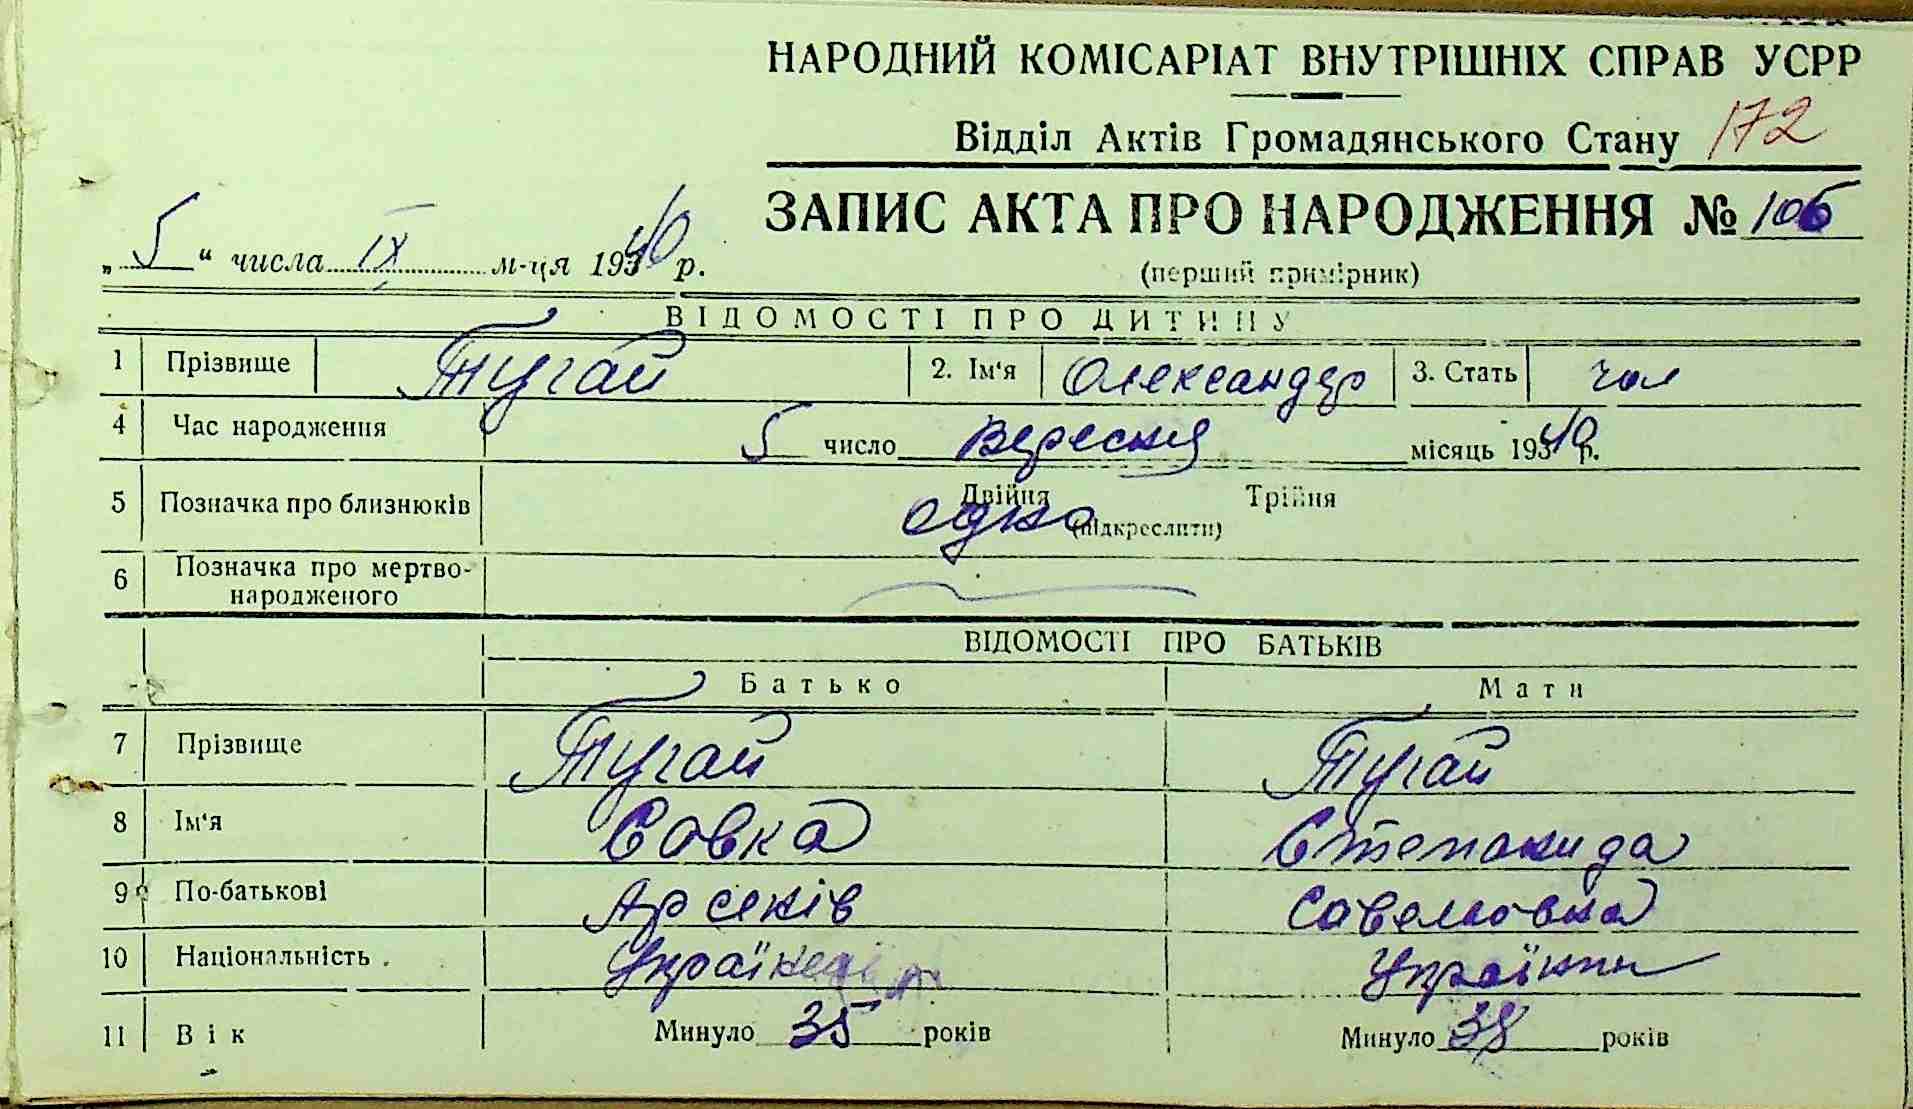 НАРОДНИЙ КОМІСАРІАТ ВНУТРІШНІХ СПРАВ УСРР
Відділ Актів Громадянського Стану 172
ЗАПИС АКТА ПРО НАРОДЖЕННЯ № 106
„ 5 “ числа IX м-ця 1940 р.
(перший примірник)
ВІДОМОСТІ ПРО ДИТИНУ
1 Прізвище Тугай 2. Ім‘я Олександр 3. Стать чол
4 Час народження 5 число Вересня місяць 1940 р.
5 Позначка про близнюків Двійня Трійня
одно (підкреслити)
6 Позначка про мертво-
народженого
ВІДОМОСТІ ПРО БАТЬКІВ
Батько Мати
7 Прізвище Тугай Тугай
8 Ім‘я Совка Степанида
9 По-батькові Арсенів Савеловна
10 Національність Українець Українка
11 Вік Минуло 35 років Минуло 38 років